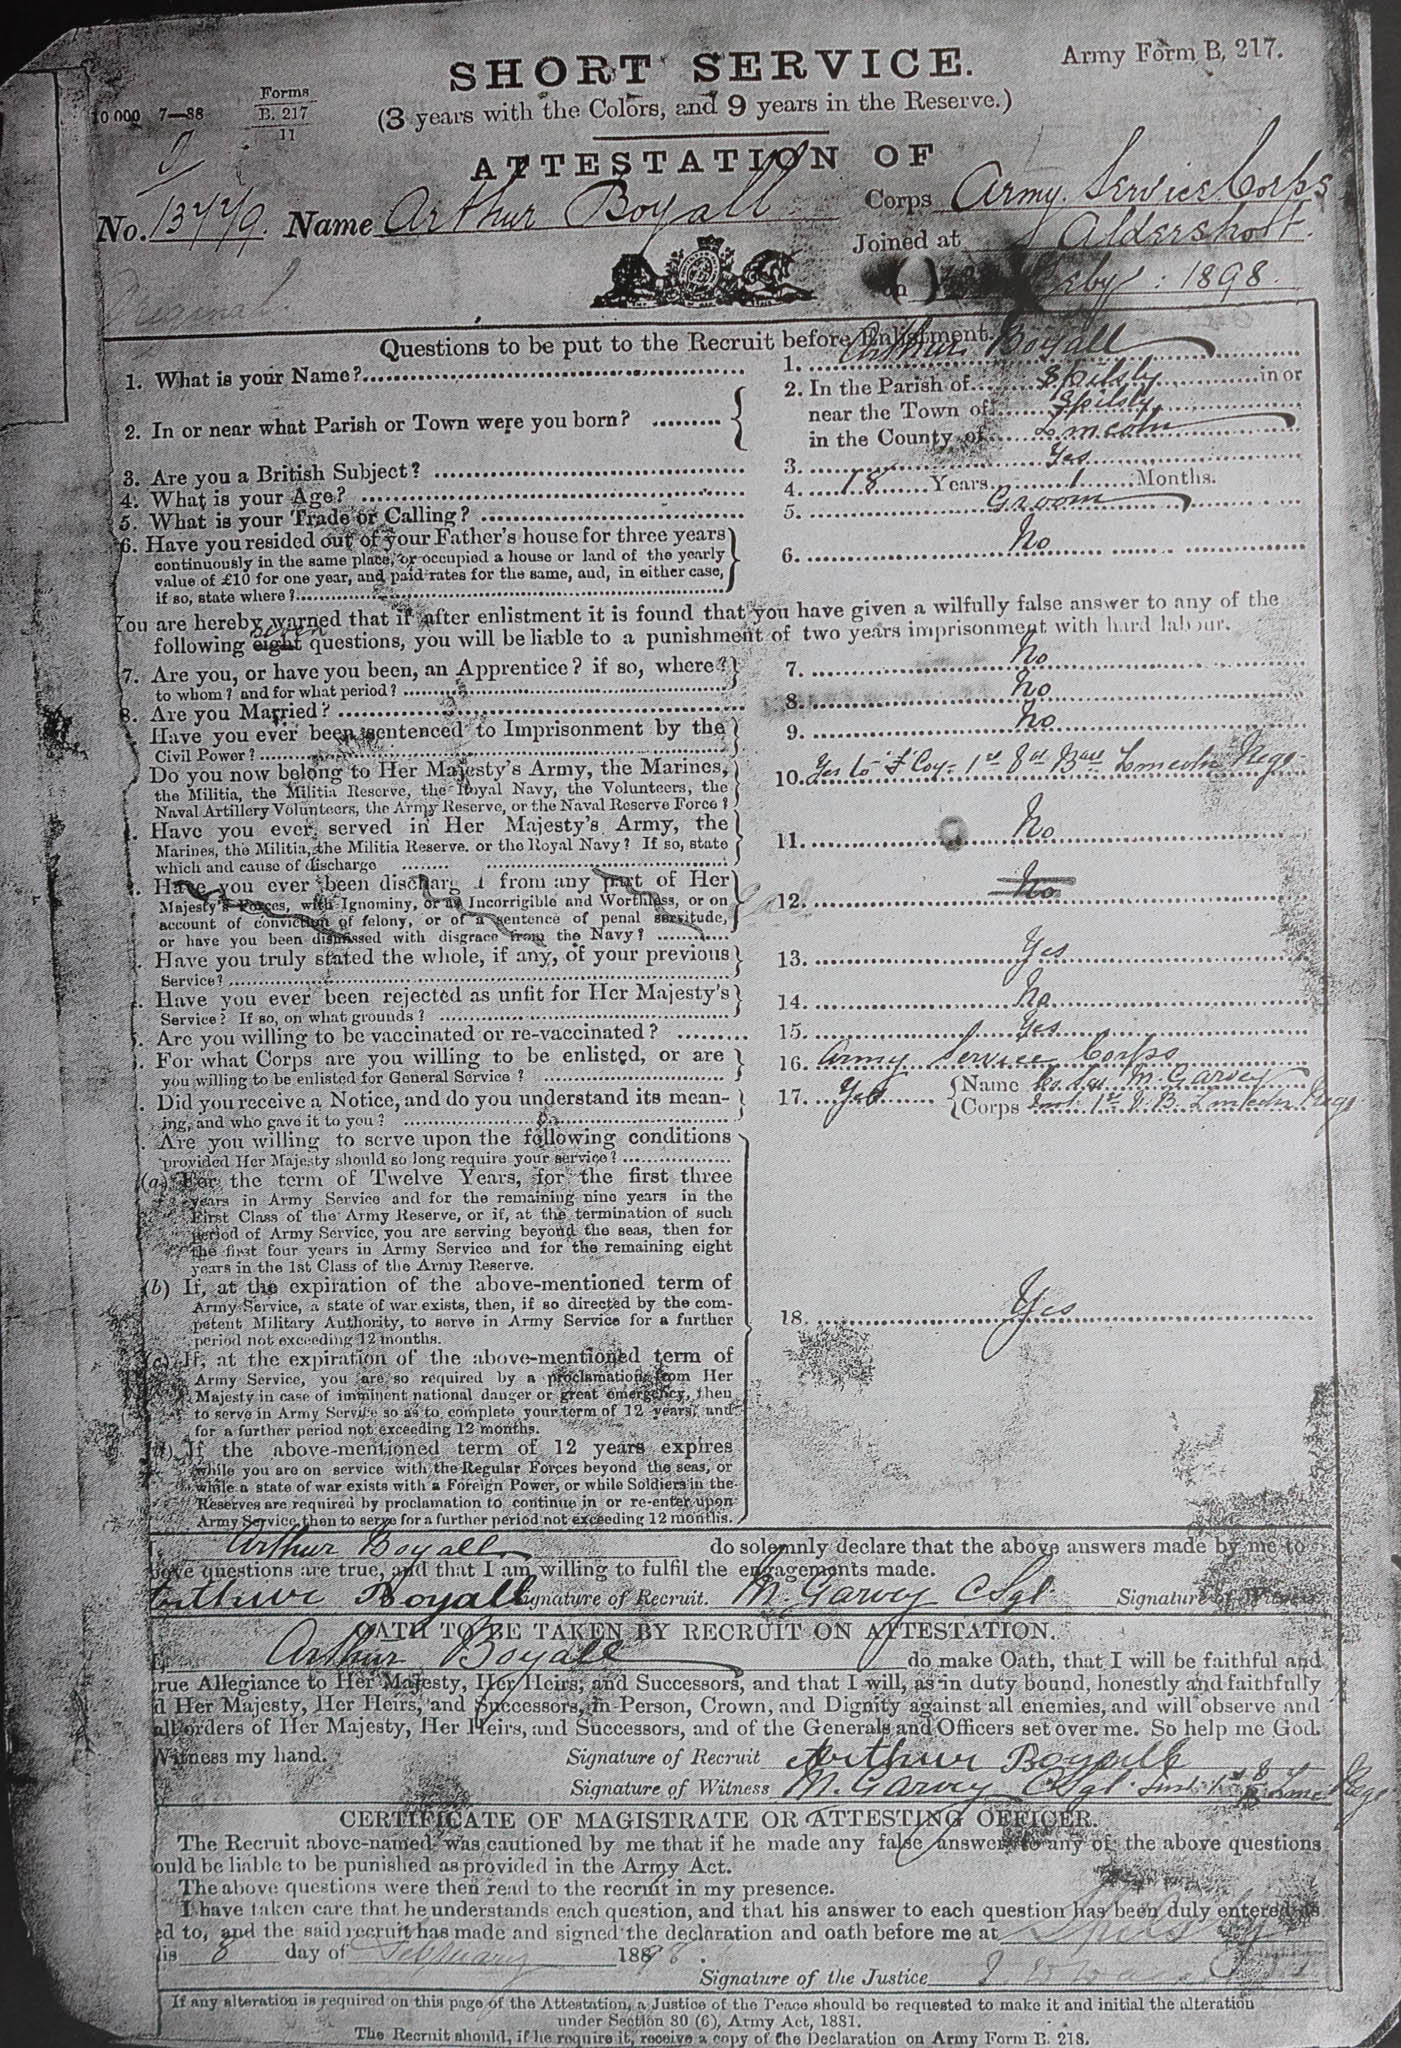 SHORT SERVICE.
Army Form B, 217.
(3 years with the Colors, and 9 years in the Reserve.)
10 000 7—88 Forms B. 217 11
ATTESTATION OF
No. Name Arthur Boyall Corps Army Service Corps
Joined at Aldershott.
on Feby: 1898.
Original
Questions to be put to the Recruit before Enlistment.
1. What is your Name? 1. Arthur Boyall
2. In or near what Parish or Town were you born? 2. In the Parish of Spilsby in or
near the Town of Spilsby
in the County of Lincoln
3. Are you a British Subject? 3. Yes
4. What is your Age? 4. 18 Years 1 Months.
5. What is your Trade or Calling? 5. Groom
6. Have you resided out of your Father's house for three years
continuously in the same place, or occupied a house or land of the yearly
value of £10 for one year, and paid rates for the same, and, in either case,
if so, state where? 6. No
You are hereby warned that if after enlistment it is found that you have given a wilfully false answer to any of the
following eight questions, you will be liable to a punishment of two years imprisonment with hard labour.
7. Are you, or have you been, an Apprentice? if so, where?
to whom? and for what period? 7. No
8. Are you Married? 8. No
Have you ever been sentenced to Imprisonment by the
Civil Power? 9. No
Do you now belong to Her Majesty's Army, the Marines,
the Militia, the Militia Reserve, the Royal Navy, the Volunteers, the
Naval Artillery Volunteers, the Army Reserve, or the Naval Reserve Force? 10. Yes to F Coy 1st Vol Batt Lincoln Regt
Have you ever served in Her Majesty's Army, the
Marines, the Militia, the Militia Reserve. or the Royal Navy? If so, state
which and cause of discharge 11. No
Have you ever been discharg from any part of Her
Majesty's Forces, with Ignominy, or as Incorrigible and Worthless, or on
account of conviction of felony, or of a sentence of penal servitude,
or have you been dismissed with disgrace from the Navy? 12. No
Have you truly stated the whole, if any, of your previous
Service? 13. Yes
Have you ever been rejected as unfit for Her Majesty's
Service? If so, on what grounds? 14. No
Are you willing to be vaccinated or re-vaccinated? 15. Yes
For what Corps are you willing to be enlisted, or are
you willing to be enlisted for General Service? 16. Army Service Corps
Did you receive a Notice, and do you understand its mean-
ing, and who gave it to you? 17. Yes Name M. Garvey
Corps 1st V. B. Lincoln Regt
Are you willing to serve upon the following conditions
provided Her Majesty should so long require your service?
(a) For the term of Twelve Years, for the first three
years in Army Service and for the remaining nine years in the
First Class of the Army Reserve, or if, at the termination of such
period of Army Service, you are serving beyond the seas, then for
the first four years in Army Service and for the remaining eight
years in the 1st Class of the Army Reserve.
(b) If, at the expiration of the above-mentioned term of
Army Service, a state of war exists, then, if so directed by the com-
petent Military Authority, to serve in Army Service for a further
period not exceeding 12 months. 18. Yes
(c) If, at the expiration of the above-mentioned term of
Army Service, you are so required by a proclamation from Her
Majesty in case of imminent national danger or great emergency, then
to serve in Army Service so as to complete your term of 12 years, and
for a further period not exceeding 12 months.
(d) If the above-mentioned term of 12 years expires
while you are on service with the Regular Forces beyond the seas, or
while a state of war exists with a Foreign Power, or while Soldiers in the
Reserves are required by proclamation to continue in or re-enter upon
Army Service, then to serve for a further period not exceeding 12 months.
I, Arthur Boyall do solemnly declare that the above answers made by me to
bove questions are true, and that I am willing to fulfil the engagements made.
Arthur Boyall Signature of Recruit. M. Garvey C Sgt Signature of Witness
OATH TO BE TAKEN BY RECRUIT ON ATTESTATION.
I, Arthur Boyall do make Oath, that I will be faithful and
rue Allegiance to Her Majesty, Her Heirs, and Successors, and that I will, as in duty bound, honestly and faithfully
d Her Majesty, Her Heirs, and Successors, in Person, Crown, and Dignity against all enemies, and will observe and
all orders of Her Majesty, Her Heirs, and Successors, and of the Generals and Officers set over me. So help me God.
Witness my hand. Signature of Recruit Arthur Boyall
Signature of Witness M. Garvey C Sgt
CERTIFICATE OF MAGISTRATE OR ATTESTING OFFICER.
The Recruit above-named was cautioned by me that if he made any false answer to any of the above questions
ould be liable to be punished as provided in the Army Act.
The above questions were then read to the recruit in my presence.
I have taken care that he understands each question, and that his answer to each question has been duly entered as
ed to, and the said recruit has made and signed the declaration and oath before me at Spilsby
his 8 day of February 1898.
Signature of the Justice
If any alteration is required on this page of the Attestation, a Justice of the Peace should be requested to make it and initial the alteration
under Section 80 (6), Army Act, 1881.
The Recruit should, if he require it, receive a copy of the Declaration on Army Form B. 218.